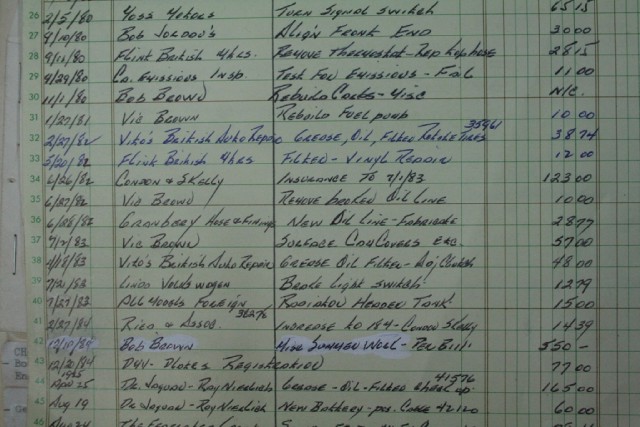 26 2/5/80 Moss Motors Turn Signal Switch 65 15
27 9/10/80 Bob Jordon's Align Front End 30 00
28 9/11/80 Flint British 4 hrs. Remove Thermostat - Rep Rep Hose 28 15
29 4/29/80 Co. Emissions Insp. Test For Emissions - Fail 11 00
30 11/1/80 Bob Brown Rebuild Carbs - Misc N/C.
31 1/20/81 Vic Brown Rebuild Fuel pump 10 00
32 2/27/82 Vito's British Auto Repair Grease, Oil, Filter Rotate Tires 35961 38 74
33 5/20/82 Flint British 4 hrs Filter - Vinyl Repair 12 00
34 6/26/82 Condon & Skelly Insurance to 7/1/83 123 00
35 6/27/82 Vic Brown Remove broken Oil Line 10 00
36 6/28/82 Granbery Hose & New Oil Line - Fabricate 28 77
37 7/2/83 Vic Brown Surface Cam Covers etc. 57 00
38 4/18/83 Vito's British Auto Repair Grease Oil Filter - Adj Clutch 48 00
39 7/21/83 Volkswagen Brake Light Switch 12 79
40 7/27/83 All Foreign Radiator Header Tank 15 00
41 2/27/84 & Assoc. 38276 Increase to 184 - Condon Skelly 14 39
42 12/10/84 Bob Brown Misc Summer Work - Per Bill 550 -
43 12/20/84 DMV - Plates Registration 77 00
1985
44 Apr 25 Dr. Jaguar - Ray Grease - Oil - Filter check up 41576 165 00
45 Aug 19 Dr Jaguar - Ray New Battery - 42120 60 00
46 Aug 24